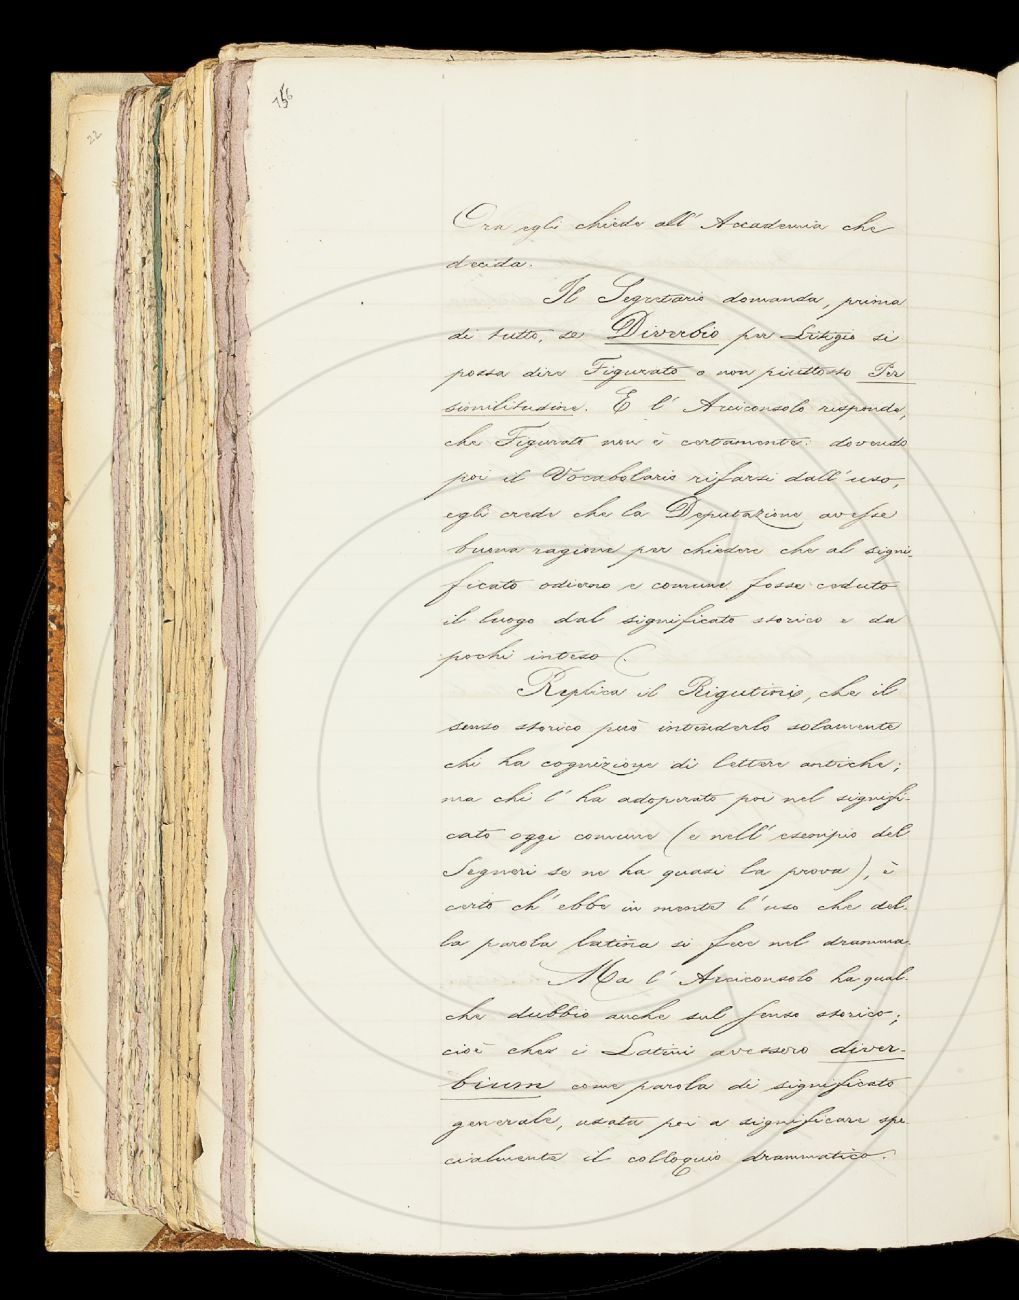 22
156
Ora egli chiede all' Accademia che
decida.
Il Segretario domanda, prima
di tutto, se Diverbio per Litigio si
possa dire Figurato o non piuttosto Per
similitudine. E l' Arciconsolo risponde,
che Figurato non è certamente: dovendo
poi il Vocabolario rifarsi dall' uso,
egli crede che la Deputazione avesse
buona ragione per chiedere che al signi-
ficato odierno e comune fosse ceduto
il luogo dal significato storico e da
pochi inteso.
Replica il Rigutini, che il
senso storico può intenderlo solamente
chi ha cognizione di lettere antiche;
ma chi l' ha adoperato poi nel signifi-
cato oggi comune (e nell' esempio del
Segneri se ne ha quasi la prova), è
certo ch' ebbe in mente l' uso che del-
la parola latina si fece nel dramma.
Ma l' Arciconsolo ha qual-
che dubbio anche sul senso storico;
cioè che i Latini avessero diver-
bium come parola di significato
generale, usata poi a significare spe-
cialmente il colloquio drammatico.